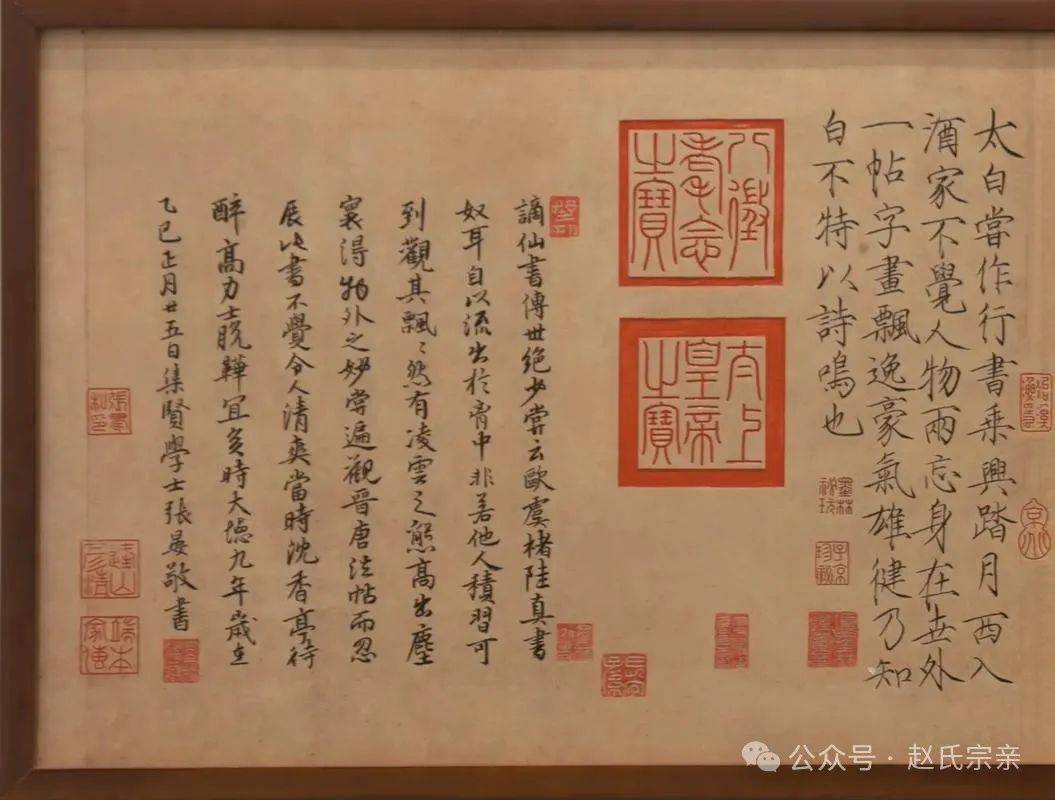 太白嘗作行書乘興踏月西入
酒家不覺人物兩忘身在世外
一帖字畫飄逸豪氣雄健乃知
白不特以詩鳴也
八徵耄念之寶
太上皇帝之寶
謫仙書傳世絕少嘗云歐虞褚陸真書
奴耳自以流出於胷中非若他人積習可
到觀其飄〻然有凌雲之態高出塵
寰得物外之妙嘗遍觀晉唐法帖而忽
展此書不覺令人清爽當時沈香亭待
醉高力士脫鞾宜矣時大德九年歲在
乙巳正月廿五日集賢學士張晏敬書
墨林祕玩
子京珍祕
張晏私印
公众号·赵氏宗亲